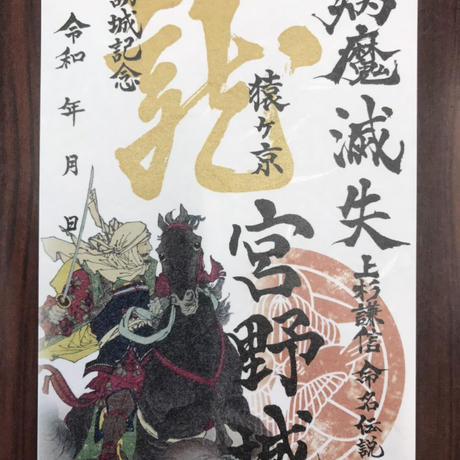 病魔滅失
上杉謙信命名伝説
猿ヶ京
宮野城
龍
訪城記念
令和 年 月 日